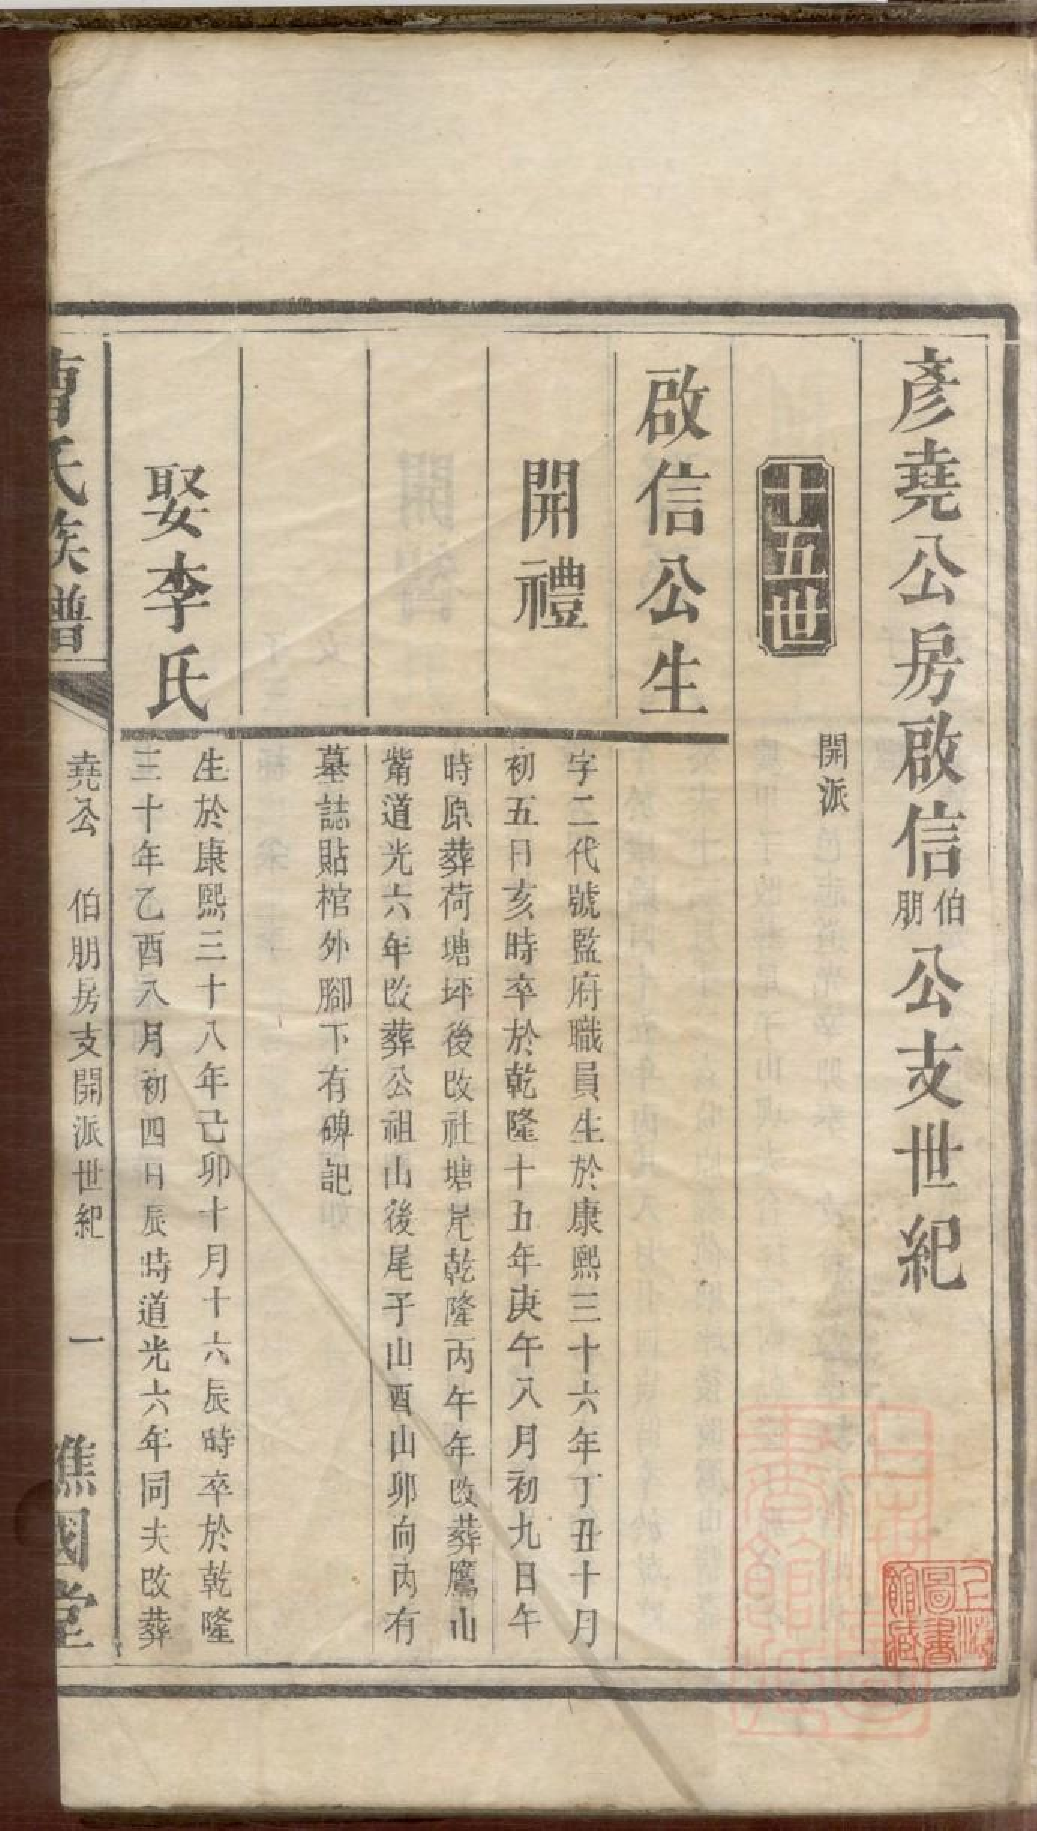 彥堯公房啟信伯朋公支世紀
十五世
開派
啟信公生
開禮
字二代號監府職員生於康熙三十六年丁丑十月
初五日亥時卒於乾隆十五年庚午八月初九日午
時原葬荷塘坪後改社塘尾乾隆丙午年改葬鷹山
觜道光六年改葬公祖山後尾子山酉山卯向內有
墓誌貼棺外腳下有碑記
娶李氏
生於康熙三十八年己卯十月十六辰時卒於乾隆
三十年乙酉八月初四日辰時道光六年同夫改葬
曹氏族譜
堯公 伯朋房支開派世紀 一
譙國堂
上海圖書館藏